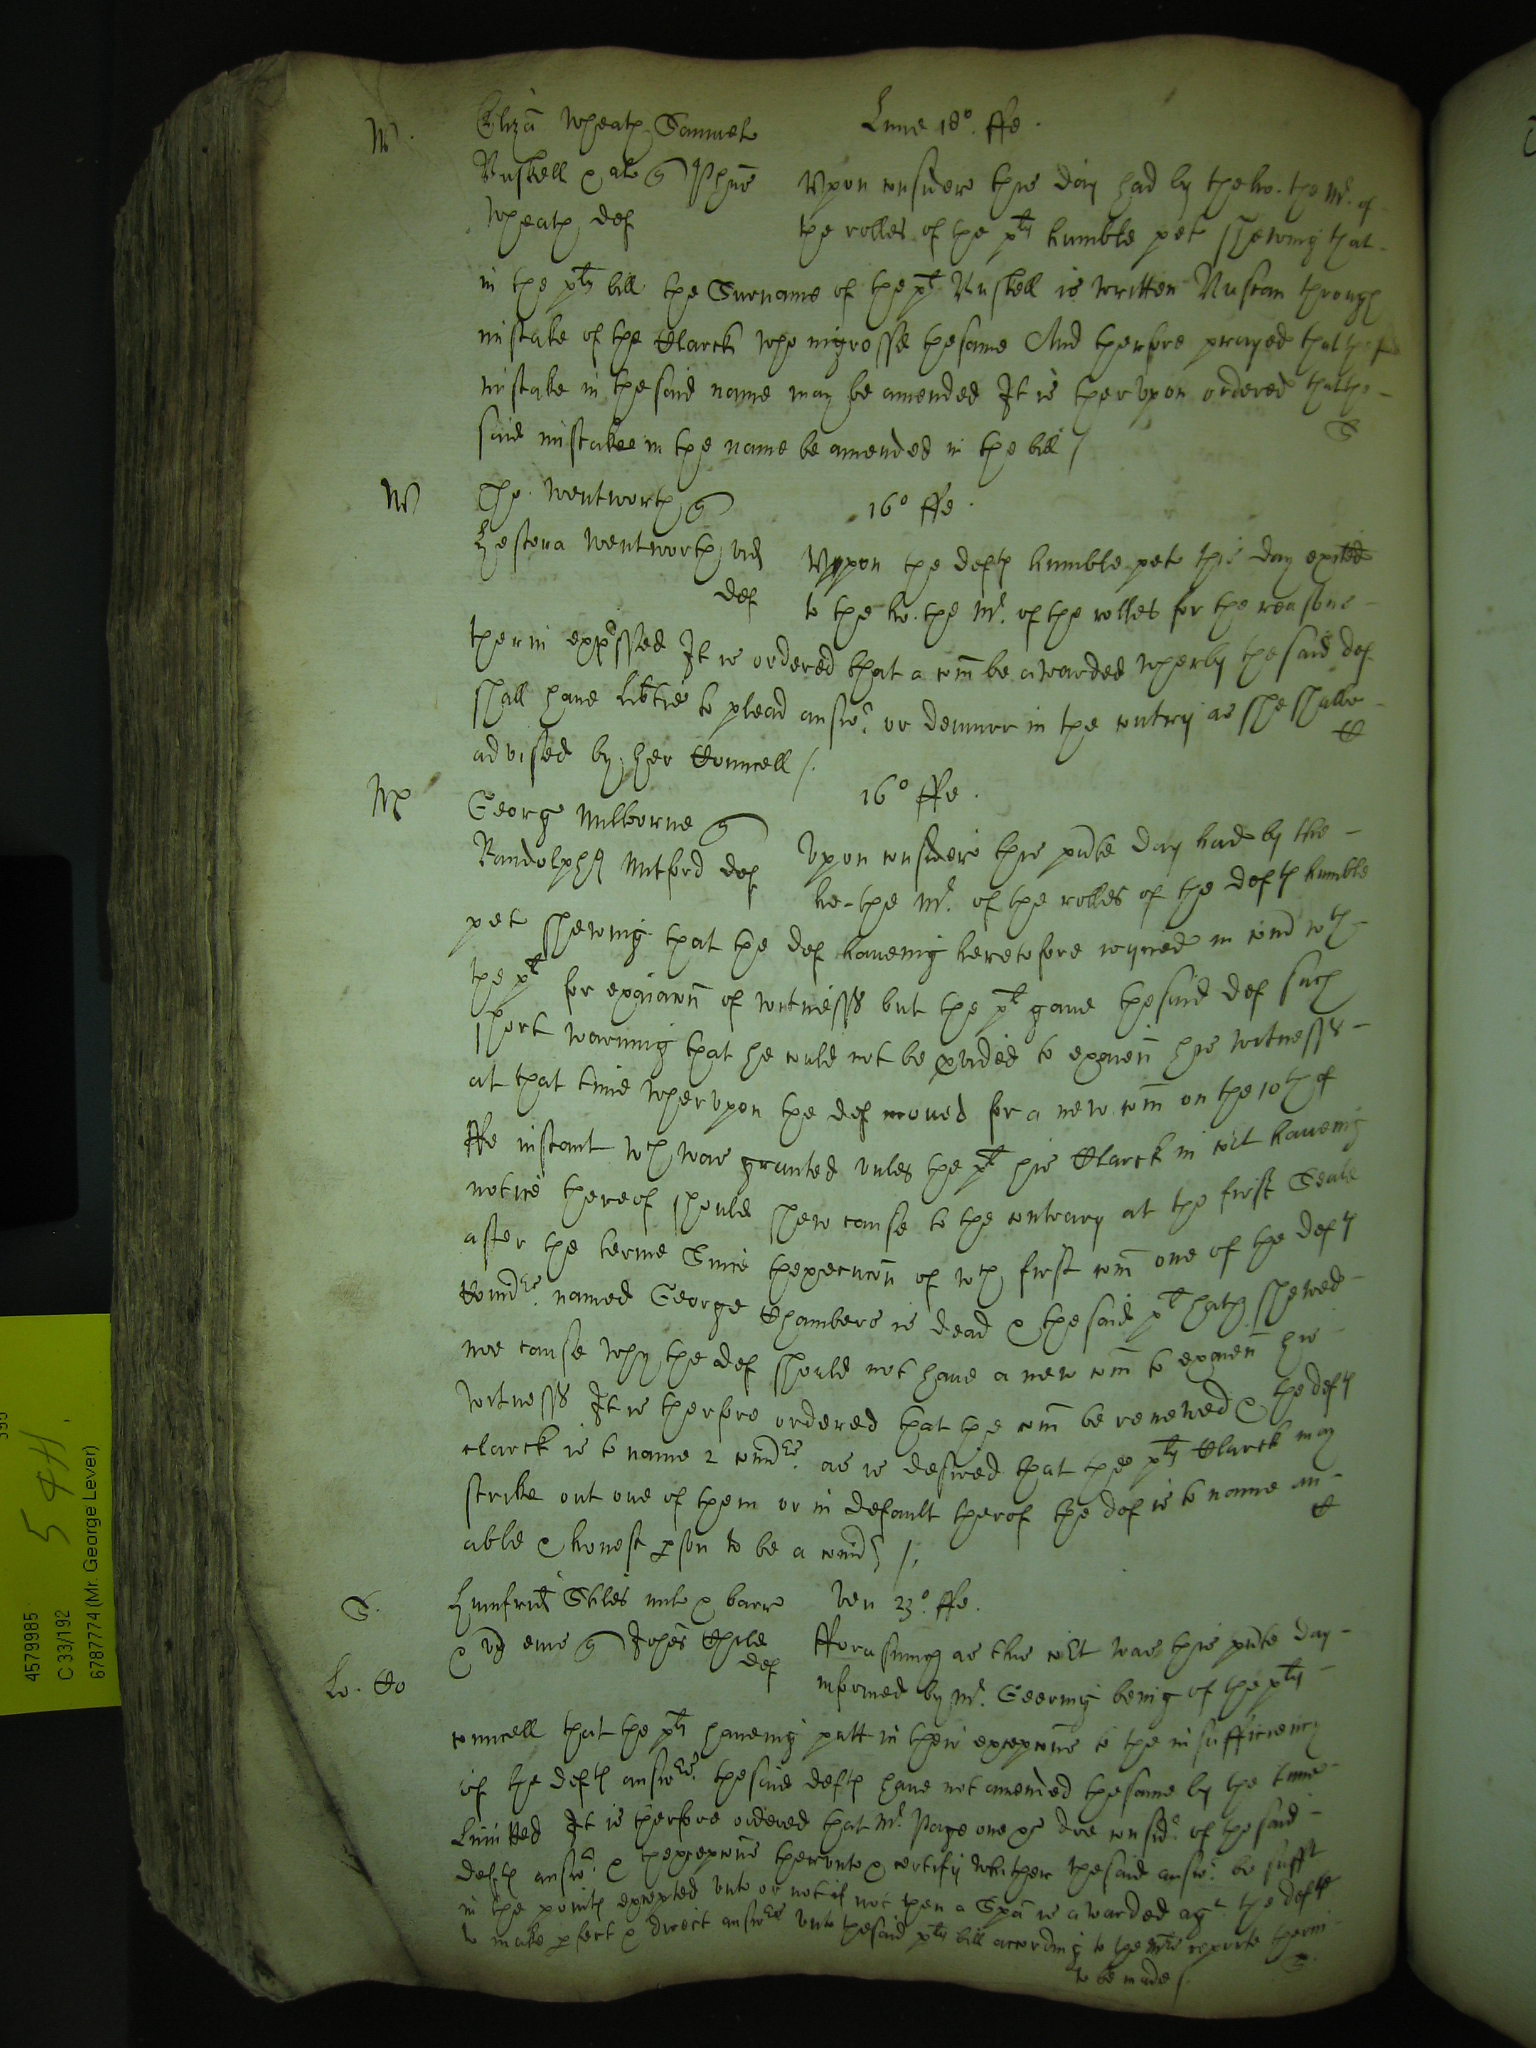 W.
Eliza Wheath Samuel
Lune 18° ffe.
Ruskell & al q
Wheath def
Upon considere this day had by the ho. the Mr. of
the rolles of the plts humble pet shewing that
in the plts bill the Surname of the plt Ruskell is written Ruscam through
mistake of the Clarck who ingrossed the same And therfore prayed that the
mistake in the said name may be amended It is therupon ordered that the
said mistake in the name be amended in the bill /
W
Tho. Wentworth q
16° ffe.
Hestera Wentworth vid
def
Uppon the defts humble pet this day exited
to the ho. the Mr. of the rolles for the reasons
therin expressed It is ordered that a com be awarded wherby the said def
shall have libtie to plead answr or demurr in the contry as she shalbe
advised by her Councell /.
M
George Milborne q
16° ffe.
Randolph Mitford def
Upon considere this pnte day had by the
ho. the Mr. of the rolles of the defts humble
pet shewing that the def haveing heretofore joyned in comd wth
the plt for exaiacon of witnesses but the plt gave the said def such
short warning that he could not be pvided to exaien his witnesses
at that time wherupon the def moved for a new com on the 10th of
ffe instant wch was granted unles the plt his Clarck in court haveing
notice thereof should shew cause to the contrary at the first Seale
after the terme Since thexecucon of wch first com one of the defts
Comdrs. named George Chambers is dead & the said plt hath shewed
noe cause why the def should not have a new com to exaien his
witnesses It is therfore ordered that the com be renewed & the defts
clarck is to name 2 comdrs. as is desired that the plts Clarck may
strike out one of them or in default therof the def is to name an
able & honest pson to be a comdr /.
S.
Humfrid Stiles milt & barr
Ven 23° ffe.
& ux eius q Johes Child
def
Lo. Co
Fforasmuch as this court was this pnte day
informed by Mr. Geering being of the plts
councell that the plts haveing putt in their excepcons to the insufficiency
of the defts answrs. the said defts have not amended the same by the time
limitted It is therfore ordered that Mr. Page one &c doe considr. of the said
defts answr. & thexcepcons therunto & certify whither the said answr. be sufft
in the points excepted unto or not if not then a Spa is awarded agt. the defts
to make pfect & direct answrs unto the said plts bill according to the Mrs reporte therin
to be made /.
4579985
C 33/192
6787774 (Mr. George Lever)